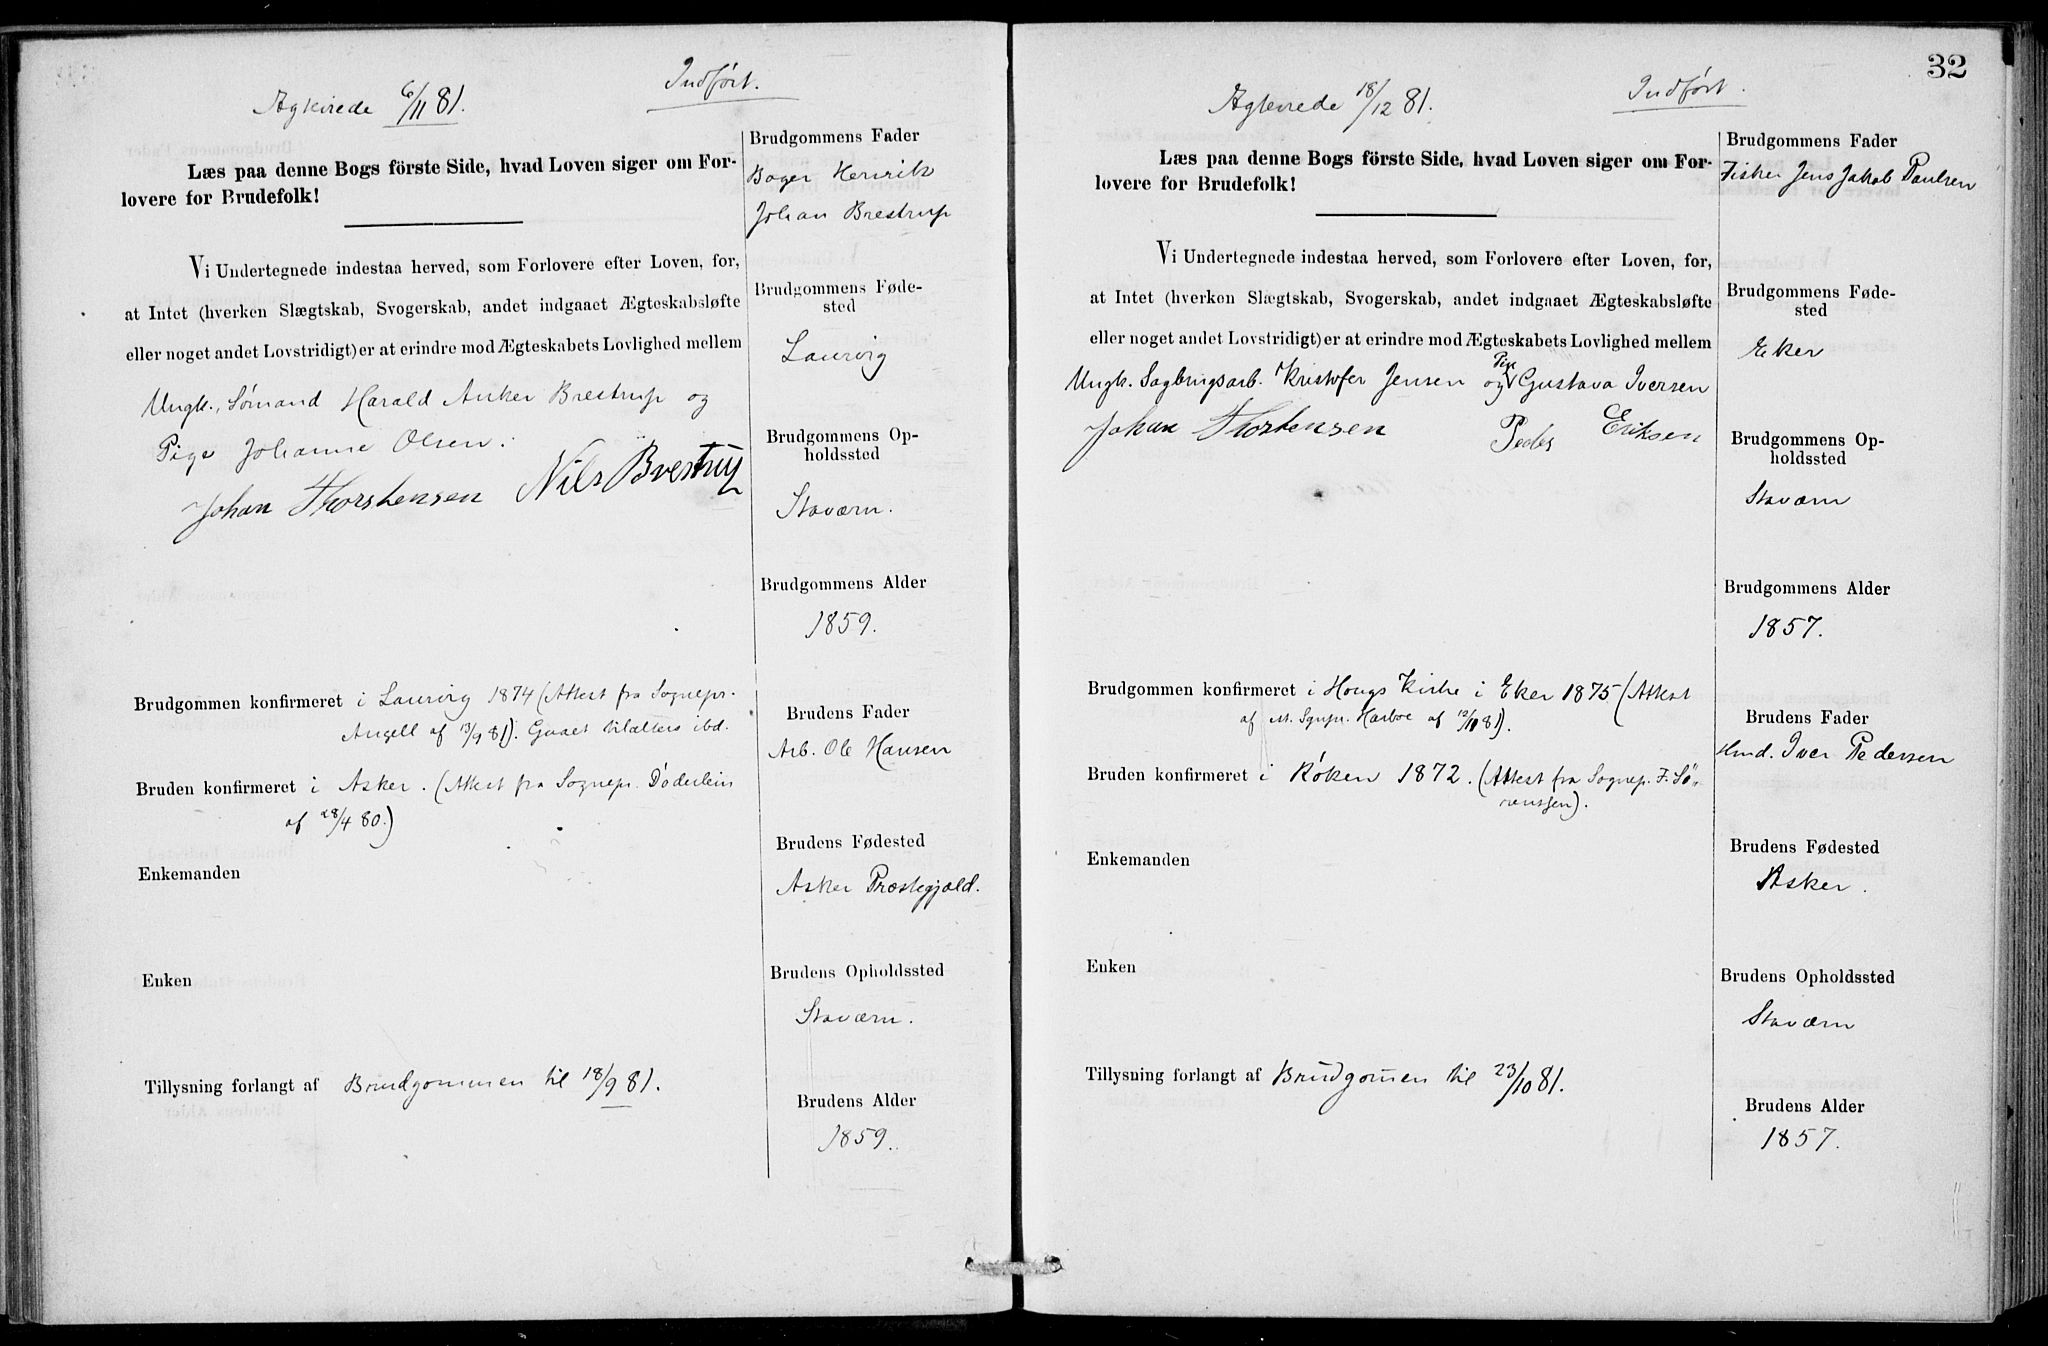 Ægteviede 6/11 81. Indført.
Læs paa denne Bogs förste Side, hvad Loven siger om For-
lovere for Brudefolk!
Vi Undertegnede indestaa herved, som Forlovere efter Loven, for,
at Intet (hverken Slægtskab, Svogerskab, andet indgaaet Ægteskabsløfte
eller noget andet Lovstridigt) er at erindre mod Ægteskabets Lovlighed mellem
Ungk., Sømand Harald Anker Brestrup og
Pige Johanne Olsen.
Johan Thorstensen Nils Brestrup
Brudgommen konfirmeret i Laurvig 1874 (Attest fra Sognepr.
Angell af 13/9 81). Gaaet tilalters ibd.
Bruden konfirmeret i Asker. (Attest fra Sognepr. Döderlein
af 28/4 80.)
Enkemanden
Enken
Tillysning forlangt af Brudgommen til 18/9 81.
Brudgommens Fader
Bager Henrik
Johan Brestrup
Brudgommens Føde-
sted
Laurvig
Brudgommens Op-
holdssted
Staværn.
Brudgommens Alder
1859.
Brudens Fader
Arb. Ole Hansen
Brudens Fødested
Asker Præstegjæld.
Brudens Opholdssted
Staværn.
Brudens Alder
1859.
32
Ægteviede 18/12 81. Indført.
Læs paa denne Bogs förste Side, hvad Loven siger om For-
lovere for Brudefolk!
Vi Undertegnede indestaa herved, som Forlovere efter Loven, for,
at Intet (hverken Slægtskab, Svogerskab, andet indgaaet Ægteskabsløfte
eller noget andet Lovstridigt) er at erindre mod Ægteskabets Lovlighed mellem
Ungk. Sagbrugsarb. Kristofer Jensen og Pige Gustava Iversen
Johan Thorstensen Peder Eriksen
Brudgommen konfirmeret i Hougs Kirke i Eker 1875 (Attest
af Sgnpr. Harboe af 12/10 81).
Bruden konfirmeret i Røken 1872. (Attest fra Sognepr. F. Sö-
renssen).
Enkemanden
Enken
Tillysning forlangt af Brudgomen til 23/10 81.
Brudgommens Fader
Fisker Jens Jakob Paulsen
Brudgommens Føde-
sted
Eker
Brudgommens Op-
holdssted
Staværn
Brudgommens Alder
1857.
Brudens Fader
Hmd. Iver Pedersen
Brudens Fødested
Asker.
Brudens Opholdssted
Staværn
Brudens Alder
1857.